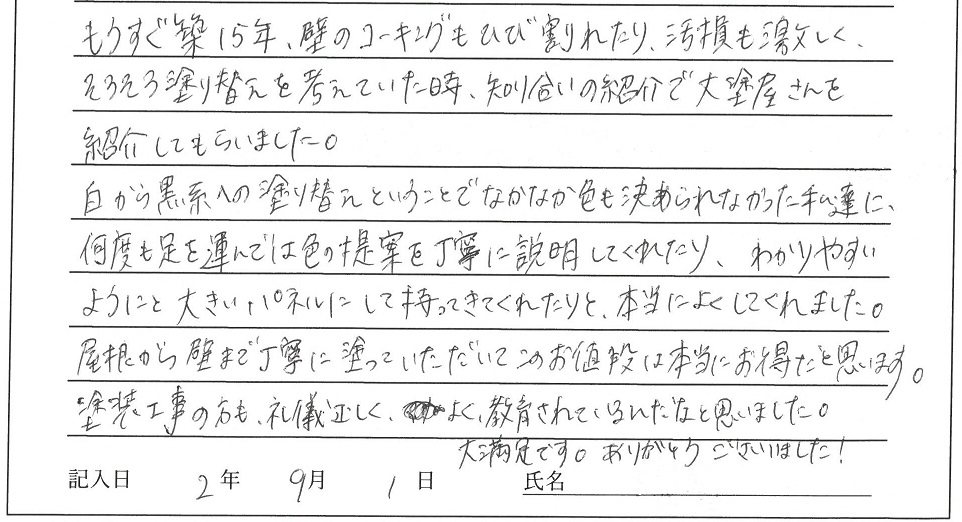 もうすぐ築15年、壁のコーキングもひび割れたり、汚損も激しく、
そろそろ塗り替えを考えていた時、知り合いの紹介で大塗屋さんを
紹介してもらいました。
白から黒系への塗り替えということでなかなか色も決められなかった私達に、
何度も足を運んでは色の提案を丁寧に説明してくれたり、わかりやすい
ようにと大きいパネルにして持ってきてくれたりと、本当によくしてくれました。
屋根から壁まで丁寧に塗っていただいてこのお値段は本当にお得だと思います。
塗装工事の方も、礼儀正しく、よく教育されているんだなと思いました。
大満足です。ありがとうございました!
記入日 2年 9月 1日 氏名